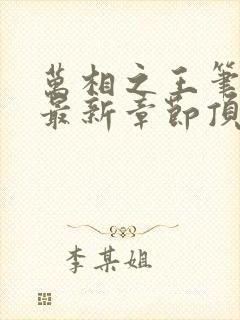 萬相之王筆
最新章節頂
李某姐